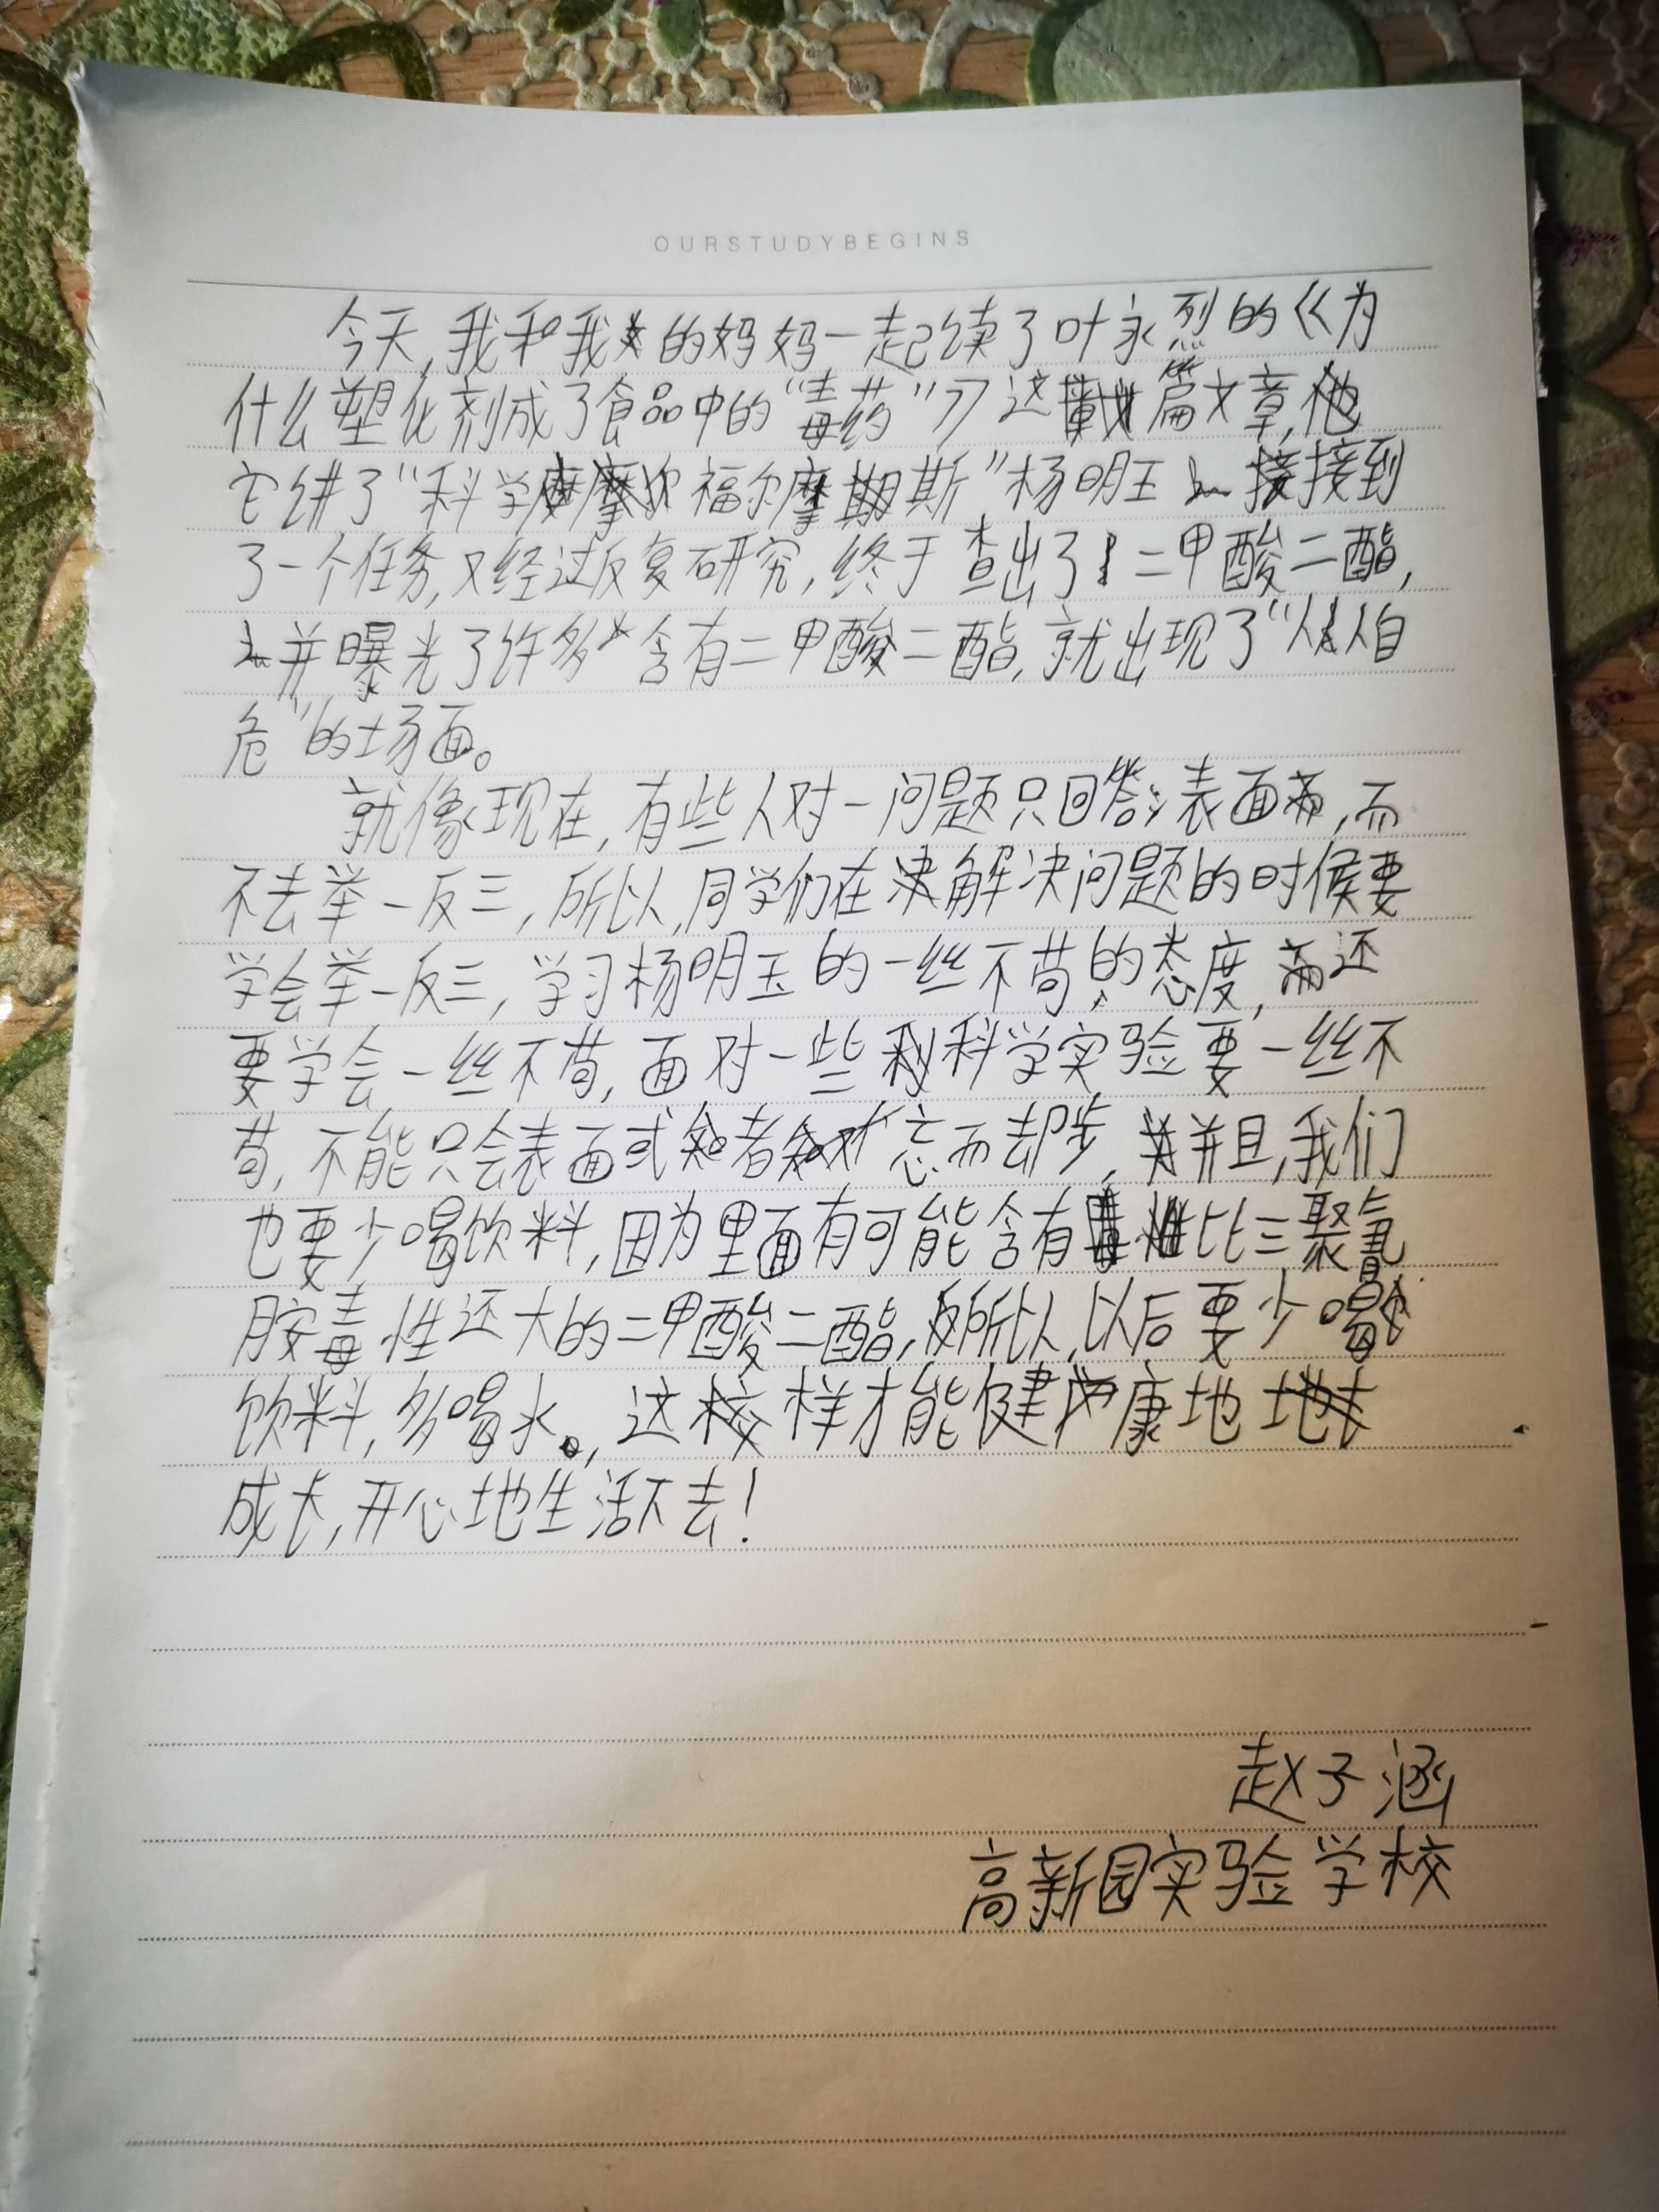 OURSTUDYBEGINS
今天,我和我的妈妈一起读了叶永烈的《为
什么塑化剂成了食品中的“毒药”》这篇文章,
它讲了“科学福尔摩斯”杨明玉接到
了一个任务,又经过反复研究,终于查出了二甲酸二酯,
并曝光了许多含有二甲酸二酯,就出现了“人人自
危”的场面。
就像现在,有些人对一问题只回答表面,而
不去举一反三,所以,同学们在解决问题的时候要
学会举一反三,学习杨明玉的一丝不苟的态度,还
要学会一丝不苟,面对一些科学实验要一丝不
苟,不能只会表面或者忘而却步,并且,我们
也要少喝饮料,因为里面有可能含有比三聚氰
胺毒性还大的二甲酸二酯,所以,以后要少喝
饮料,多喝水,这样才能健康地
成长,开心地生活下去!
赵子涵
高新园实验学校